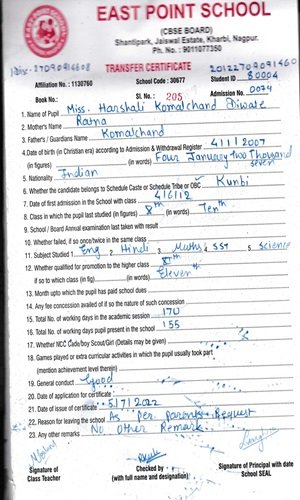 EAST POINT SCHOOL
(CBSE BOARD)
Shantipark, Jaiswal Estate, Kharbi, Nagpur.
Ph. No. : 9011077350
TRANSFER CERTIFICATE
Affiliation No. : 1130760 School Code : 30677 Student ID 80004
Book No.: Sl. No.: 205 Admission No. 0024
1. Name of Pupil Miss. Harshali Komalchand Diwate
2. Mother's Name Ratna
3. Father's / Guardians Name Komalchand
4. Date of birth (in Christian era) according to Admission & Withdrawal Register 4/1/2007
(in figures) (in words) Four January two Thousand seven
5. Nationality Indian
6. Whether the candidate belongs to Schedule Caste or Schedule Tribe or OBC Kunbi
7. Date of first admission in the School with class 4/6/12
8. Class in which the pupil last studied (in figures) (in words) Tenth
9. School / Board Annual examination last taken with result
10. Whether failed, if so once/twice in the same class
11. Subject Studied 1 Eng 2 Hindi 3 Maths 4 SST 5 Science
12. Whether qualified for promotion to the higher
if so to which class (in fig) (in words) Eleven
13. Month upto which the pupil has paid school dues
14. Any fee concession availed of if so the nature of such concession
15. Total No. of working days in the academic session 170
16. Total No. of working days pupil present in the school 155
17. Whether NCC Code/boy Scout/Girl (Details may be given)
18. Games played or extra curricular activities in which the pupil usually took part
(mention achievement level therein)
19. General conduct Good
20. Date of application for certificate
21. Date of issue of certificate 5/7/2022
22. Reason for leaving the school As Per Parents Request
23. Any other remarks No Other Remark
Signature of Class Teacher
Checked by (with full name and designation)
Signature of Principal with date School SEAL